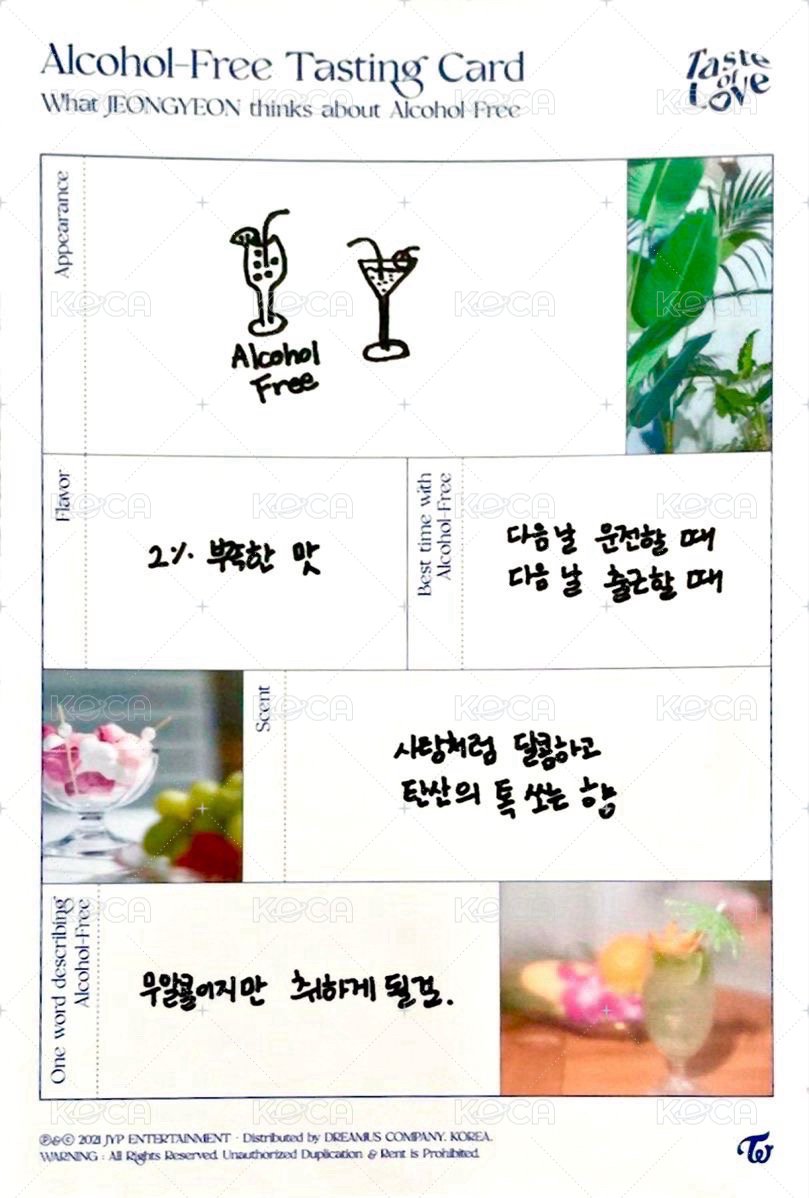 Alcohol-Free Tasting Card
What JEONGYEON thinks about Alcohol-Free
Taste
of
Love
Appearance
Alcohol
Free
Flavor
2% 부족한 맛
Best time with
Alcohol-Free
다음날 운전할 때
다음 날 출근할 때
Scent
사탕처럼 달콤하고
탄산의 톡 쏘는 향
One word describing
Alcohol-Free
무알콜이지만 취하게 될걸.
℗&© 2021 JYP ENTERTAINMENT · Distributed by DREAMUS COMPANY. KOREA.
WARNING : All Rights Reserved. Unauthorized Duplication & Rent is Prohibited.
TW
KOCA